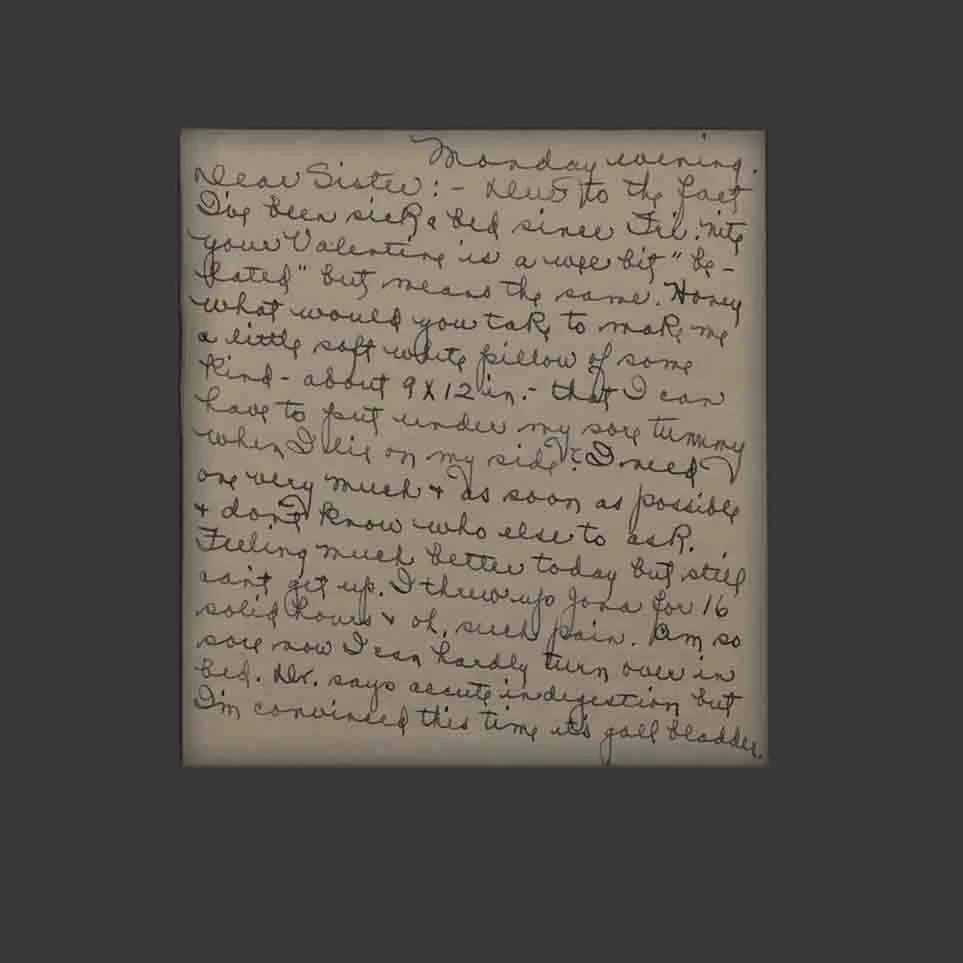 Monday evening.
Dear Sister: - Due to the fact
I've been sick a bed since Fri. nite
your Valentine is a wee bit "be-
lated" but means the same. Honey
what would you take to make me
a little soft white pillow of some
kind - about 9 X 12 in. - that I can
have to put under my sore tummy
when I lie on my side? I need
one very much + as soon as possible
+ don't know who else to ask.
Feeling much better today but still
can't get up. I threw up for 16
solid hours + oh, such pain. Am so
sore now I can hardly turn over in
bed. Dr. says accute indigestion but
I'm convinced this time it's gall bladder.